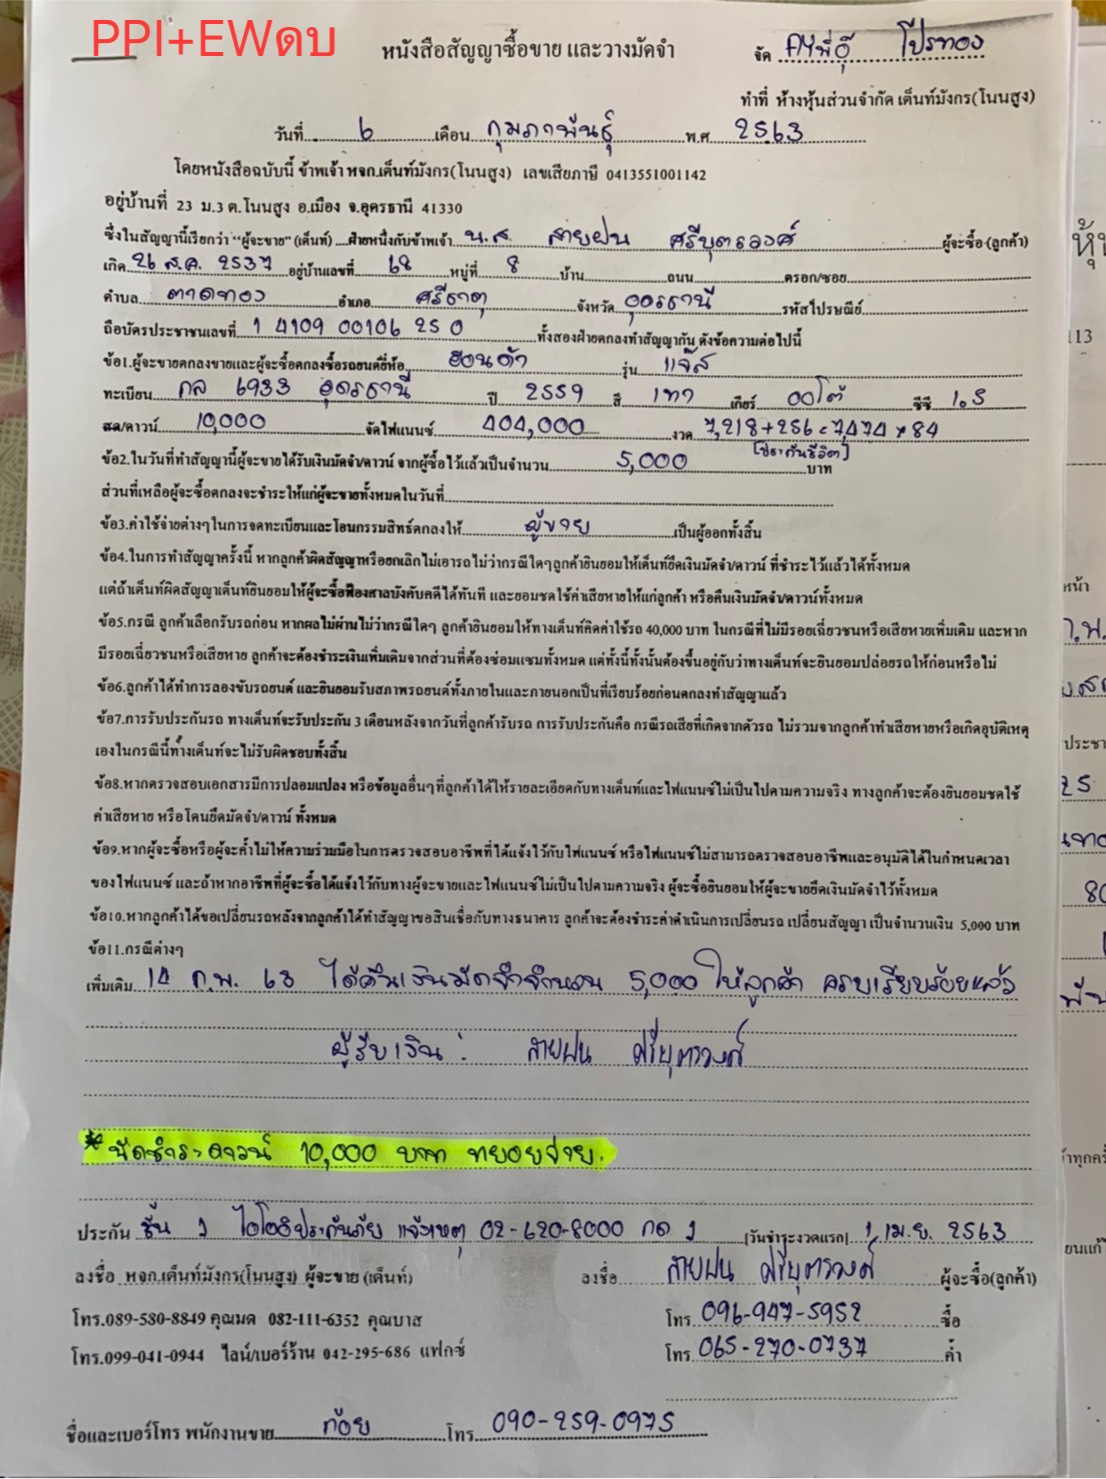 PPI+EWดบ
หนังสือสัญญาซื้อขาย และวางมัดจำ
จัด AYพี่อุ๊ โปรทอง
ทำที่ ห้างหุ้นส่วนจำกัด เต็นท์มังกร(โนนสูง)
วันที่ 6 เดือน กุมภาพันธุ์ พ.ศ 2563
โดยหนังสือฉบับนี้ ข้าพเจ้า หจก.เต็นท์มังกร(โนนสูง) เลขเสียภาษี 0413551001142
อยู่บ้านที่ 23 ม.3 ต.โนนสูง อ.เมือง จ.อุดรธานี 41330
ซึ่งในสัญญานี้เรียกว่า "ผู้จะขาย" (เต็นท์) ฝ่ายหนึ่งกับข้าพเจ้า น.ส. สายฝน ศรีบุตรวงศ์ ผู้จะซื้อ (ลูกค้า)
เกิด 26 ส.ค. 2537 อยู่บ้านเลขที่ 68 หมู่ที่ 8 บ้าน ถนน ตรอก/ซอย
ตำบล ตาดทอง อำเภอ ศรีธาตุ จังหวัด อุดรธานี รหัสไปรษณีย์
ถือบัตรประชาชนเลขที่ 1 4109 00106 25 0 ทั้งสองฝ่ายตกลงทำสัญญากัน ดังข้อความต่อไปนี้
ข้อ1.ผู้จะขายตกลงขายและผู้จะซื้อตกลงซื้อรถยนต์ยี่ห้อ ฮอนด้า รุ่น แจ๊ส
ทะเบียน กล 6933 อุดรธานี ปี 2559 สี เทา เกียร์ ออโต้ ซีซี 1.5
สด/ดาวน์ 10,000 จัดไฟแนนซ์ 404,000 งวด 7,218+256=7474×84
(ประกันชีวิต)
ข้อ2.ในวันที่ทำสัญญานี้ผู้จะขายได้รับเงินมัดจำ/ดาวน์ จากผู้ซื้อไว้แล้วเป็นจำนวน 5,000 บาท
ส่วนที่เหลือผู้จะซื้อตกลงจะชำระให้แก่ผู้จะขายทั้งหมดในวันที่
ข้อ3.ค่าใช้จ่ายต่างๆในการจดทะเบียนและโอนกรรมสิทธ์ตกลงให้ ผู้ขาย เป็นผู้ออกทั้งสิ้น
ข้อ4.ในการทำสัญญาครั้งนี้ หากลูกค้าผิดสัญญาหรือยกเลิกไม่เอารถไม่ว่ากรณีใดๆลูกค้ายินยอมให้เต็นท์ยึดเงินมัดจำ/ดาวน์ ที่ชำระไว้แล้วได้ทั้งหมด
แต่ถ้าเต็นท์ผิดสัญญาเต็นท์ยินยอมให้ผู้จะซื้อฟ้องศาลบังคับคดีได้ทันที และยอมชดใช้ค่าเสียหายให้แก่ลูกค้า หรือคืนเงินมัดจำ/ดาวน์ทั้งหมด
ข้อ5.กรณี ลูกค้าเลือกรับรถก่อน หากผลไม่ผ่านไม่ว่ากรณีใดๆ ลูกค้ายินยอมให้ทางเต็นท์คิดค่าใช้รถ 40,000 บาท ในกรณีที่ไม่มีรอยเฉี่ยวชนหรือเสียหายเพิ่มเติม และหาก
มีรอยเฉี่ยวชนหรือเสียหาย ลูกค้าจะต้องชำระเงินเพิ่มเติมจากส่วนที่ต้องซ่อมแซมทั้งหมด แต่ทั้งนี้ทั้งนั้นต้องขึ้นอยู่กับว่าทางเต็นท์จะยินยอมปล่อยรถให้ก่อนหรือไม่
ข้อ6.ลูกค้าได้ทำการลองขับรถยนต์ และยินยอมรับสภาพรถยนต์ทั้งภายในและภายนอกเป็นที่เรียบร้อยก่อนตกลงทำสัญญาแล้ว
ข้อ7.การรับประกันรถ ทางเต็นท์จะรับประกัน 3 เดือนหลังจากวันที่ลูกค้ารับรถ การรับประกันคือ กรณีรถเสียที่เกิดจากตัวรถ ไม่รวมจากลูกค้าทำเสียหายหรือเกิดอุบัติเหตุ
เองในกรณีนี้ทางเต็นท์จะไม่รับผิดชอบทั้งสิ้น
ข้อ8.หากตรวจสอบเอกสารมีการปลอมแปลง หรือข้อมูลอื่นๆที่ลูกค้าได้ให้รายละเอียดกับทางเต็นท์และไฟแนนซ์ไม่เป็นไปตามความจริง ทางลูกค้าจะต้องยินยอมชดใช้
ค่าเสียหาย หรือโดนยึดมัดจำ/ดาวน์ ทั้งหมด
ข้อ9.หากผู้จะซื้อหรือผู้จะค้ำไม่ให้ความร่วมมือในการตรวจสอบอาชีพที่ได้แจ้งไว้กับไฟแนนซ์ หรือไฟแนนซ์ไม่สามารถตรวจสอบอาชีพและอนุมัติได้ในกำหนดเวลา
ของไฟแนนซ์ และถ้าหากอาชีพที่ผู้จะซื้อได้แจ้งไว้กับทางผู้จะขายและไฟแนนซ์ไม่เป็นไปตามความจริง ผู้จะซื้อยินยอมให้ผู้จะขายยึดเงินมัดจำไว้ทั้งหมด
ข้อ10.หากลูกค้าได้ขอเปลี่ยนรถหลังจากลูกค้าได้ทำสัญญาขอสินเชื่อกับทางธนาคาร ลูกค้าจะต้องชำระค่าดำเนินการเปลี่ยนรถ เปลี่ยนสัญญา เป็นจำนวนเงิน 5,000 บาท
ข้อ11.กรณีต่างๆ
เพิ่มเติม 14 ก.พ. 63 ได้คืนเงินมัดจำจำนวน 5,000 ให้ลูกค้า ครบเรียบร้อยแล้ว
ผู้รับเงิน : สายฝน ศรีบุตรวงศ์
* นัดชำระดาวน์ 10,000 บาท ทยอยจ่าย.
ประกัน ชั้น 1 ไอโออิประกันภัย แจ้งเหตุ 02-620-8000 กด 1 (วันชำระงวดแรก) 1 เม.ย. 2563
ลงชื่อ หจก.เต็นท์มังกร(โนนสูง) ผู้จะขาย (เต็นท์) ลงชื่อ สายฝน ศรีบุตรวงศ์ ผู้จะซื้อ(ลูกค้า)
โทร.089-580-8849 คุณมด 082-111-6352 คุณบาส โทร 096-947-5952 ซื้อ
โทร.099-041-0944 ไลน์/เบอร์ร้าน 042-295-686 แฟกซ์ โทร 065-270-0737 ค้ำ
ชื่อและเบอร์โทร พนักงานขาย ก้อย โทร 090-259-0975